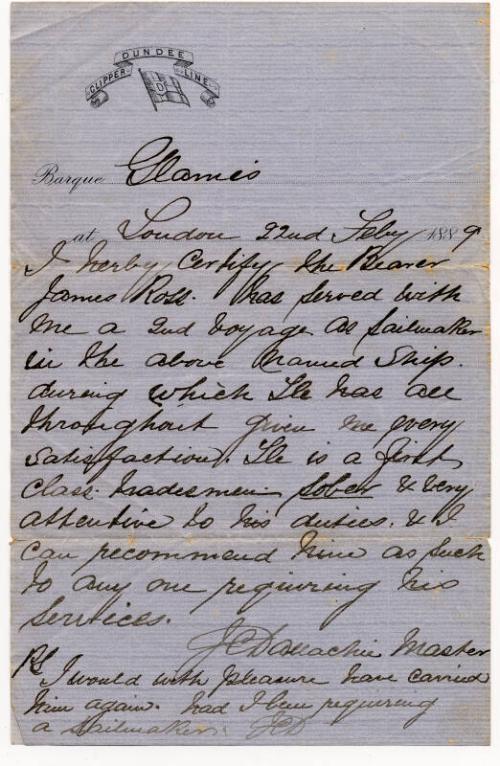 DUNDEE
CLIPPER LINE
D
Barque Glamis
at London 22nd Feby 1889
I herby Certify the Bearer
James Ross. has served with
me a 2nd Voyage as Sailmaker
in the above named Ship.
during which He has all
throughout given me every
Satisfaction. He is a first
Class. tradesmen sober & very
attentive to his duties. & I
can recommend him as such
to any one requiring his
services.
Master
PS I would with pleasure have carried
him again. had I been requiring
a Sailmaker. JCD